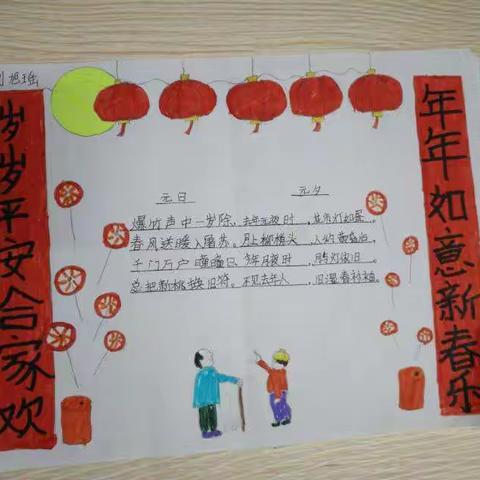 旭瑶
岁岁平安合家欢
年年如意新春乐
元日 元夕
爆竹声中一岁除，去年元夜时，花市灯如昼。
春风送暖入屠苏。月上柳梢头，人约黄昏后。
千门万户曈曈日，今年月夜时，灯依旧。
总把新桃换旧符。不见去年人，湿春衫袖。